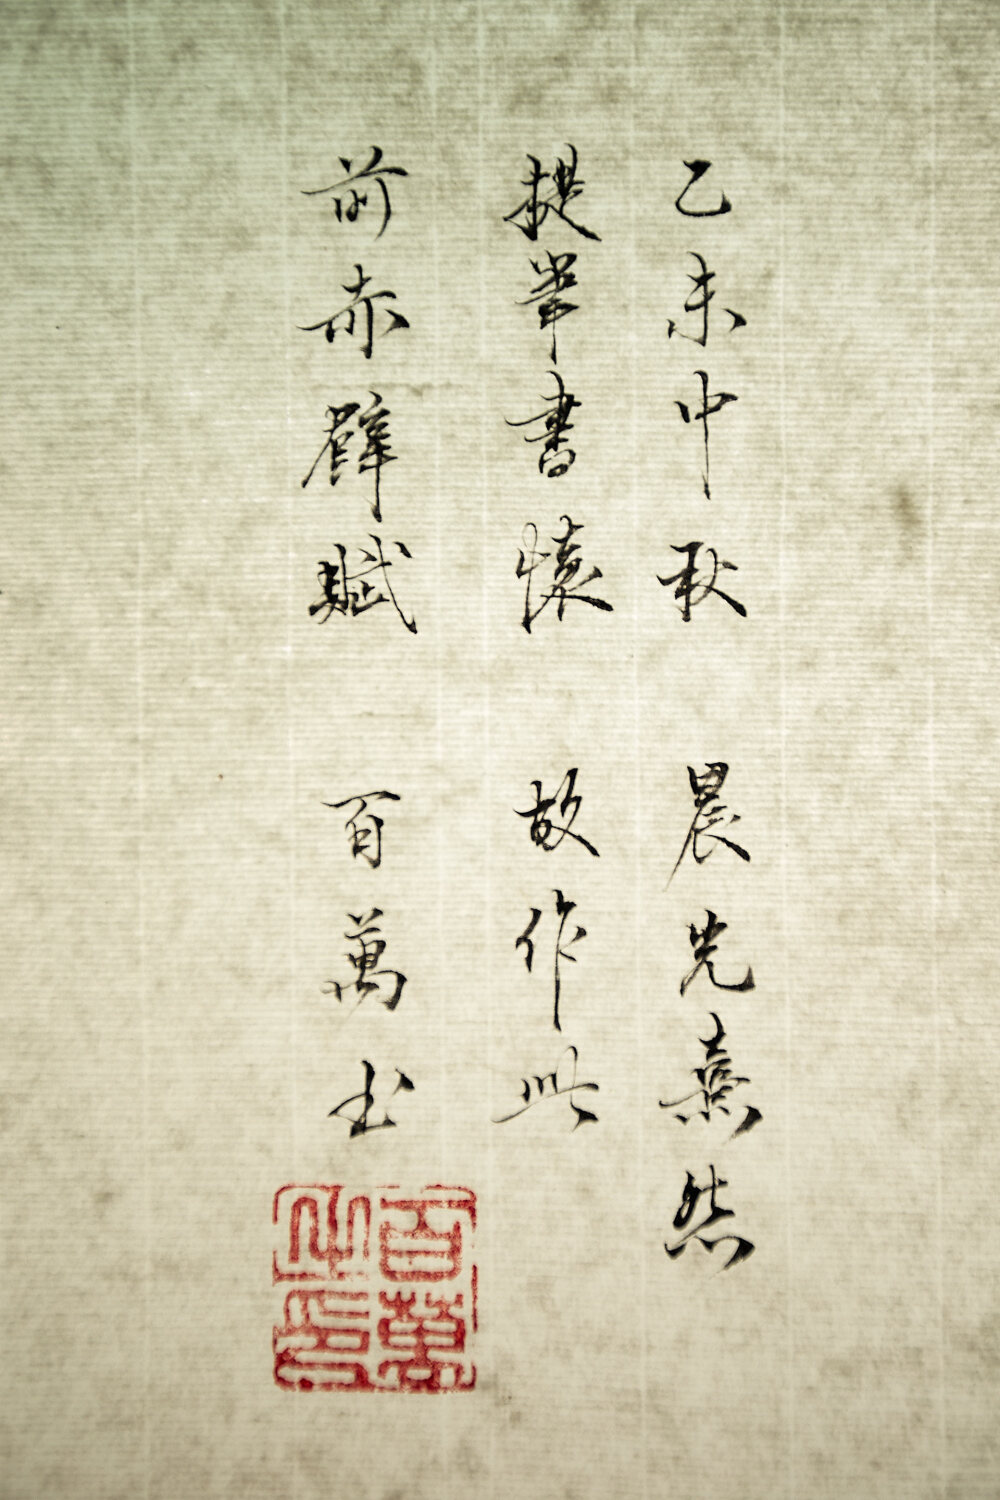 乙未中秋 晨光熹然
提筆書懷 故作此
前赤壁賦 百萬书
百萬之印